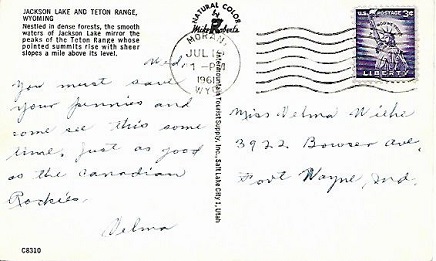 JACKSON LAKE AND TETON RANGE,
WYOMING
Nestled in dense forests, the smooth
waters of Jackson Lake mirror the
peaks of the Teton Range whose
pointed summits rise with sheer
slopes a mile above its level.
Wed.
You must save
your pennies and
come see this some
time. Just as good
as the Canadian
Rockies.
Velma
C8310
NATURAL COLOR
Mike Roberts
MORAN
JUL
1 - PM
1961
WYO
Intermountain Tourist Supply, Inc., Salt Lake City 1, Utah
U.S. POSTAGE 3¢
LIBERTY
Miss Velma Wilke
3922 Bowser Ave.
Fort Wayne, Ind.